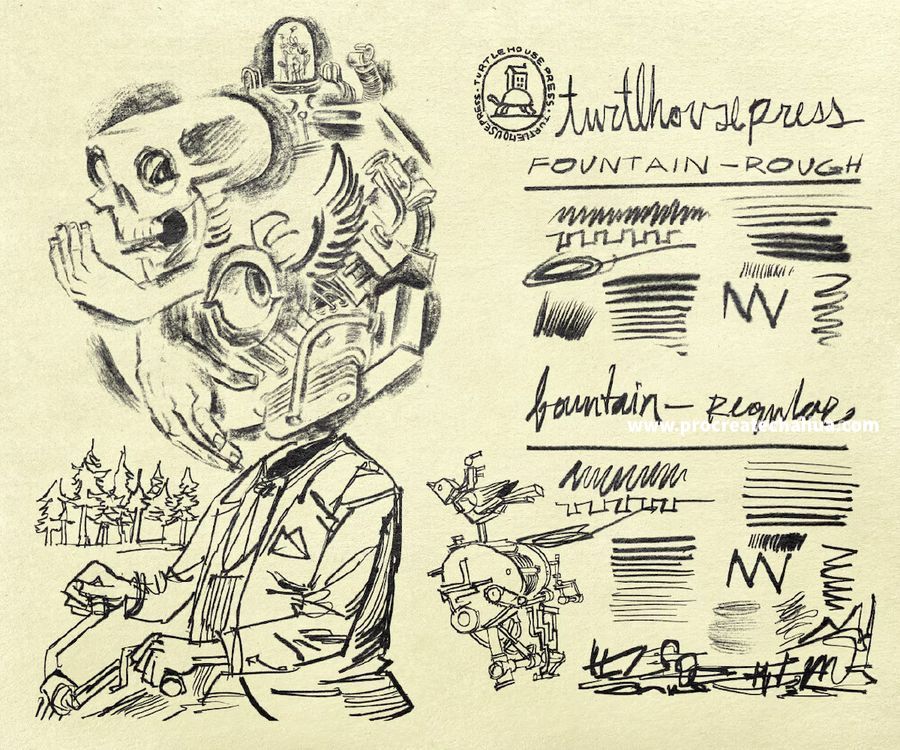 TURTLEHOUSE PRESS · TURTLEHOUSE PRESS ·
turtlhousepress
FOUNTAIN-ROUGH
fountain-Regular
www.procreatechahua.com